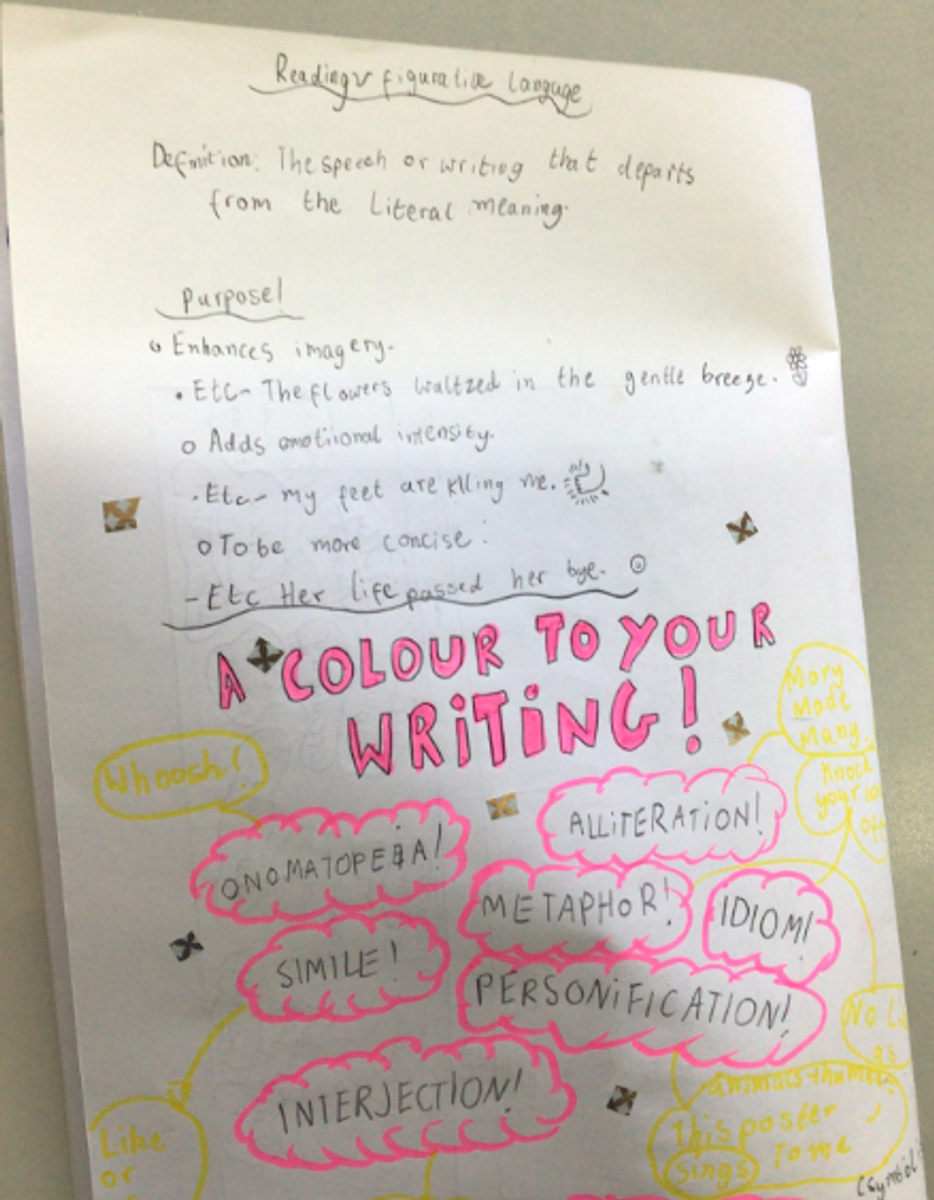 Reading figurative langauge
Definition: The speech or writing that departs
from the Literal meaning.
Purpose!
Enhances imagery.
Etc- The flowers waltzed in the gentle breeze.
Adds emotiional intensity.
Etc- my feet are klling me.
To be more concise.
-Etc Her life passed her bye.
A COLOUR TO YOUR
WRiTiNG!
Mory
Made
Many.
Whoosh!
Knock
your
ALLiTERATiON!
ONOMATOPEiA!
METAPHOR!
IDIOM!
SIMILE!
PERSONiFiCATiON!
No
as
INTERJECTiON!
This poster
Sings To me
Like
or